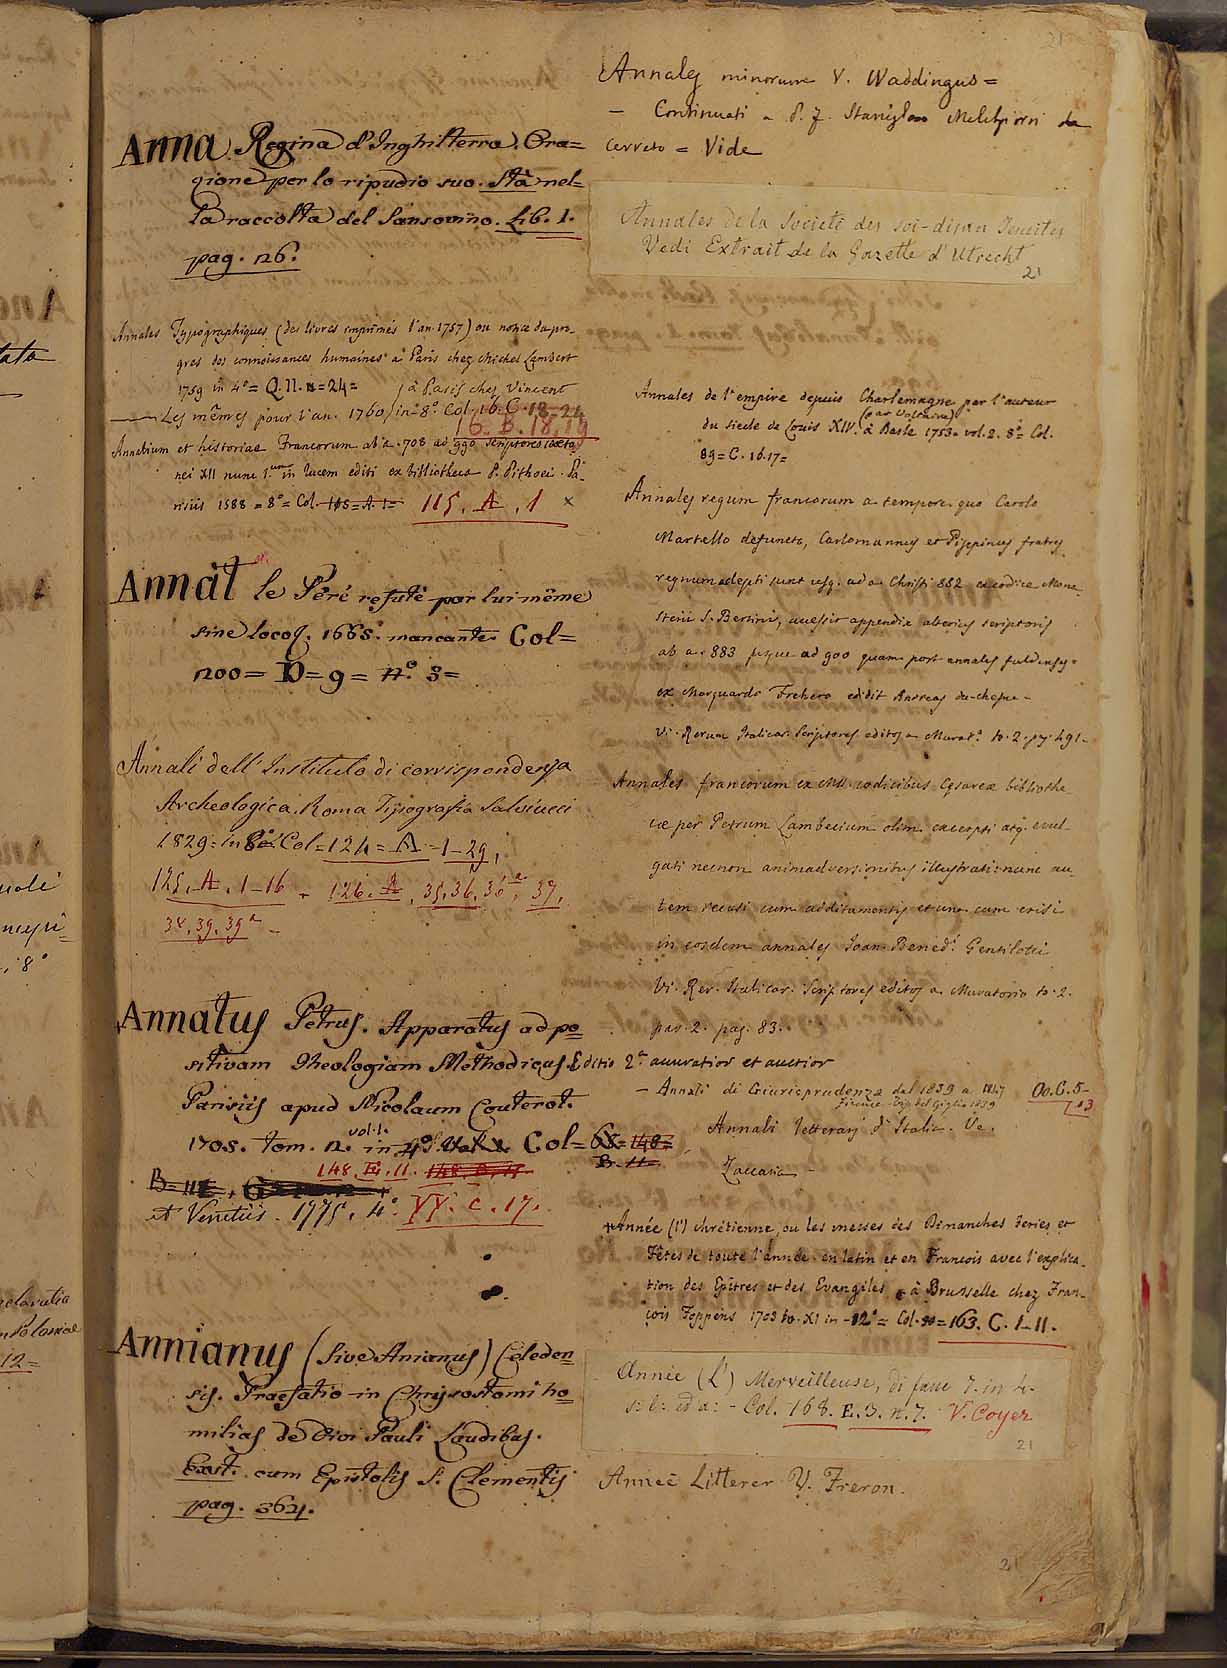 Anna Regina d'Inghilterra. Ora=
gione per lo ripudio suo. Stà nel=
la raccolta del Sansovino. Lib. 1.
pag. 26.
Annales Typographiques (des livres imprimés l'an 1757) ou notice du pro-
grés des connoissances humaines à Paris chez Michel Lambert
1759 in 4º = Q.II. n=24=
Les mêmes pour l'an. 1760 in 8º à Paris chez Vincent
Col. 16. C. 18-24
16. B. 18, 19
Annalium et historiae Francorum ab a. 708 ad 990 scriptores coeta
nei XII nunc 1.um in lucem editi ex bibliotheca P. Pithoei. Pa-
risiis 1588 = 8º = Col. 115=A.1=
115. A. 1 x
Annat le Peré refuté par lui même
sine locoq. 1665. mancante. Col=
200= D=9= nº. 3=
Annali dell'Instituto di corrispondenza
Archeologica. Roma Tipografia Salviucci
1829. in 8º Col=124= A-1-29,
125. A. 1-16 - 126. A. 35, 36, 36a, 37,
38, 39, 39a -
Annatus Petrus. Apparatus ad po=
sitivam Theologiam Methodicus. Editio 2ª accuratior et auctior
Parisiis apud Nicolaum Couterot.
1705. tom. 2. vol. 1. in 4º Col= 68=148=
B. 11=
148. E. 11.
et Venetiis. 1775, 4º. YY. C. 17.
Annianus (sive Anianus) Celeden=
sis. Praefatio in Chrysostomi ho
milias de Divi Pauli Laudibus.
Exst. cum Epistolis S. Clementis
pag. 364.
Annales minorum V. Waddingus =
- Continuati a P. J. Stanislao Melchiorri da
Cerreto = Vide
Annales de la Societé des soi-disan Jesuites
Vedi Extrait de la Gazette d'Utrecht
21
Annales de l'empire depuis Charlemagne par l'auteur
du siecle de Louis XIV. (par Voltaire) à Basle 1753. vol. 2. 8º= Col.
89= C. 16.17=
Annales regum francorum a tempore quo Carolo
Martello defuncto, Carlomannus et Pippinus fratres
regnum adepti sunt usq. ad a. Christi 882 ex codice Mona
sterii S. Bertini, accessit appendix alterius scriptoris
ab a. 883 usque ad 900 quam post annales fuldenses
ex Marquardo Frehero edidit Andreas du-chesne -
Vi. Rerum Italicar. Scriptores editos a Murat. to. 2. pag 491-
Annales francorum ex MS. codicibus Cesareae bibliothe
cae per Petrum Lambecium olim excerpti atq. evul-
gati necnon animadversionibus illustrati: nunc au-
tem recusi cum additamentis et una cum crisi
in eosdem annales Joan. Bened. Gentilotti
Vi. Rer. Italicar. Scriptores editos a Muratorio to. 2.
par. 2. pag. 83.
- Annali di Giurisprudenza dal 1839 a 1847 Oo. C. 5-
Firenze. Tip. del Giglio 1839 713
Annali letterarj d'Italia. Ve.
Zaccaria -
Année (l') chrétienne, ou les messes des Dimanches feries, et
Fêtes de toute l'année en latin et en François avec l'explica-
tion des Epîtres et des Evangiles à Bruxelle chez Fran-
çois Foppens 1703 to. XI in -12º= Col. =163. C. 1-11.
Année (L') Merveilleuse, di facc 7. in 4.
s: l: ed a: - Col. 168. E. 3. n. 7. V. Coyer
21
Anneé Litterer V. Freron.